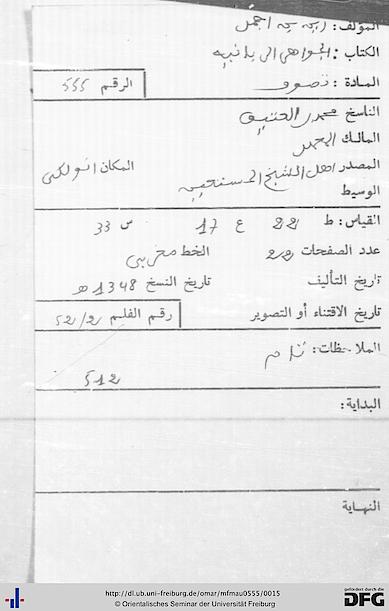 المؤلف:
الكتاب: الجواهر الربانية
المادة: تصوف الرقم 555
الناسخ محمد
المالك
المصدر اهل الشيخ
المكان
الوسيط
القياس: ط 22 ع 17 س 33
عدد الصفحات 22 الخط مغربي
تاريخ التأليف تاريخ النسخ 1348 هـ
تاريخ الاقتناء أو التصوير رقم الفلم 52/2
الملاحظات: تام
512
البداية:
النهاية
http://dl.ub.uni-freiburg.de/omar/mfmau0555/0015
© Orientalisches Seminar der Universität Freiburg
gefördert durch die
DFG